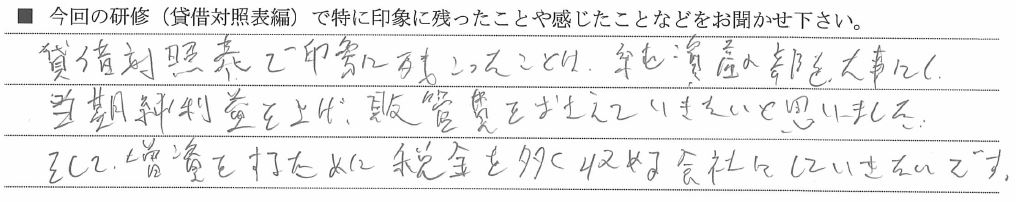 ■ 今回の研修（貸借対照表編）で特に印象に残ったことや感じたことなどをお聞かせ下さい。
貸借対照表で印象に残ったことは、純資産の部を大事にし、
当期純利益を上げ、販管費をおさえていきたいと思いました。
そして、増資をするために税金を多く収める会社にしていきたいです。